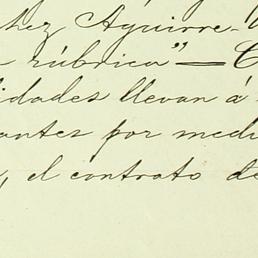 chez Aguirre-
rúbrica" — C
lidades llevan á
antes por medi
, el contrato de